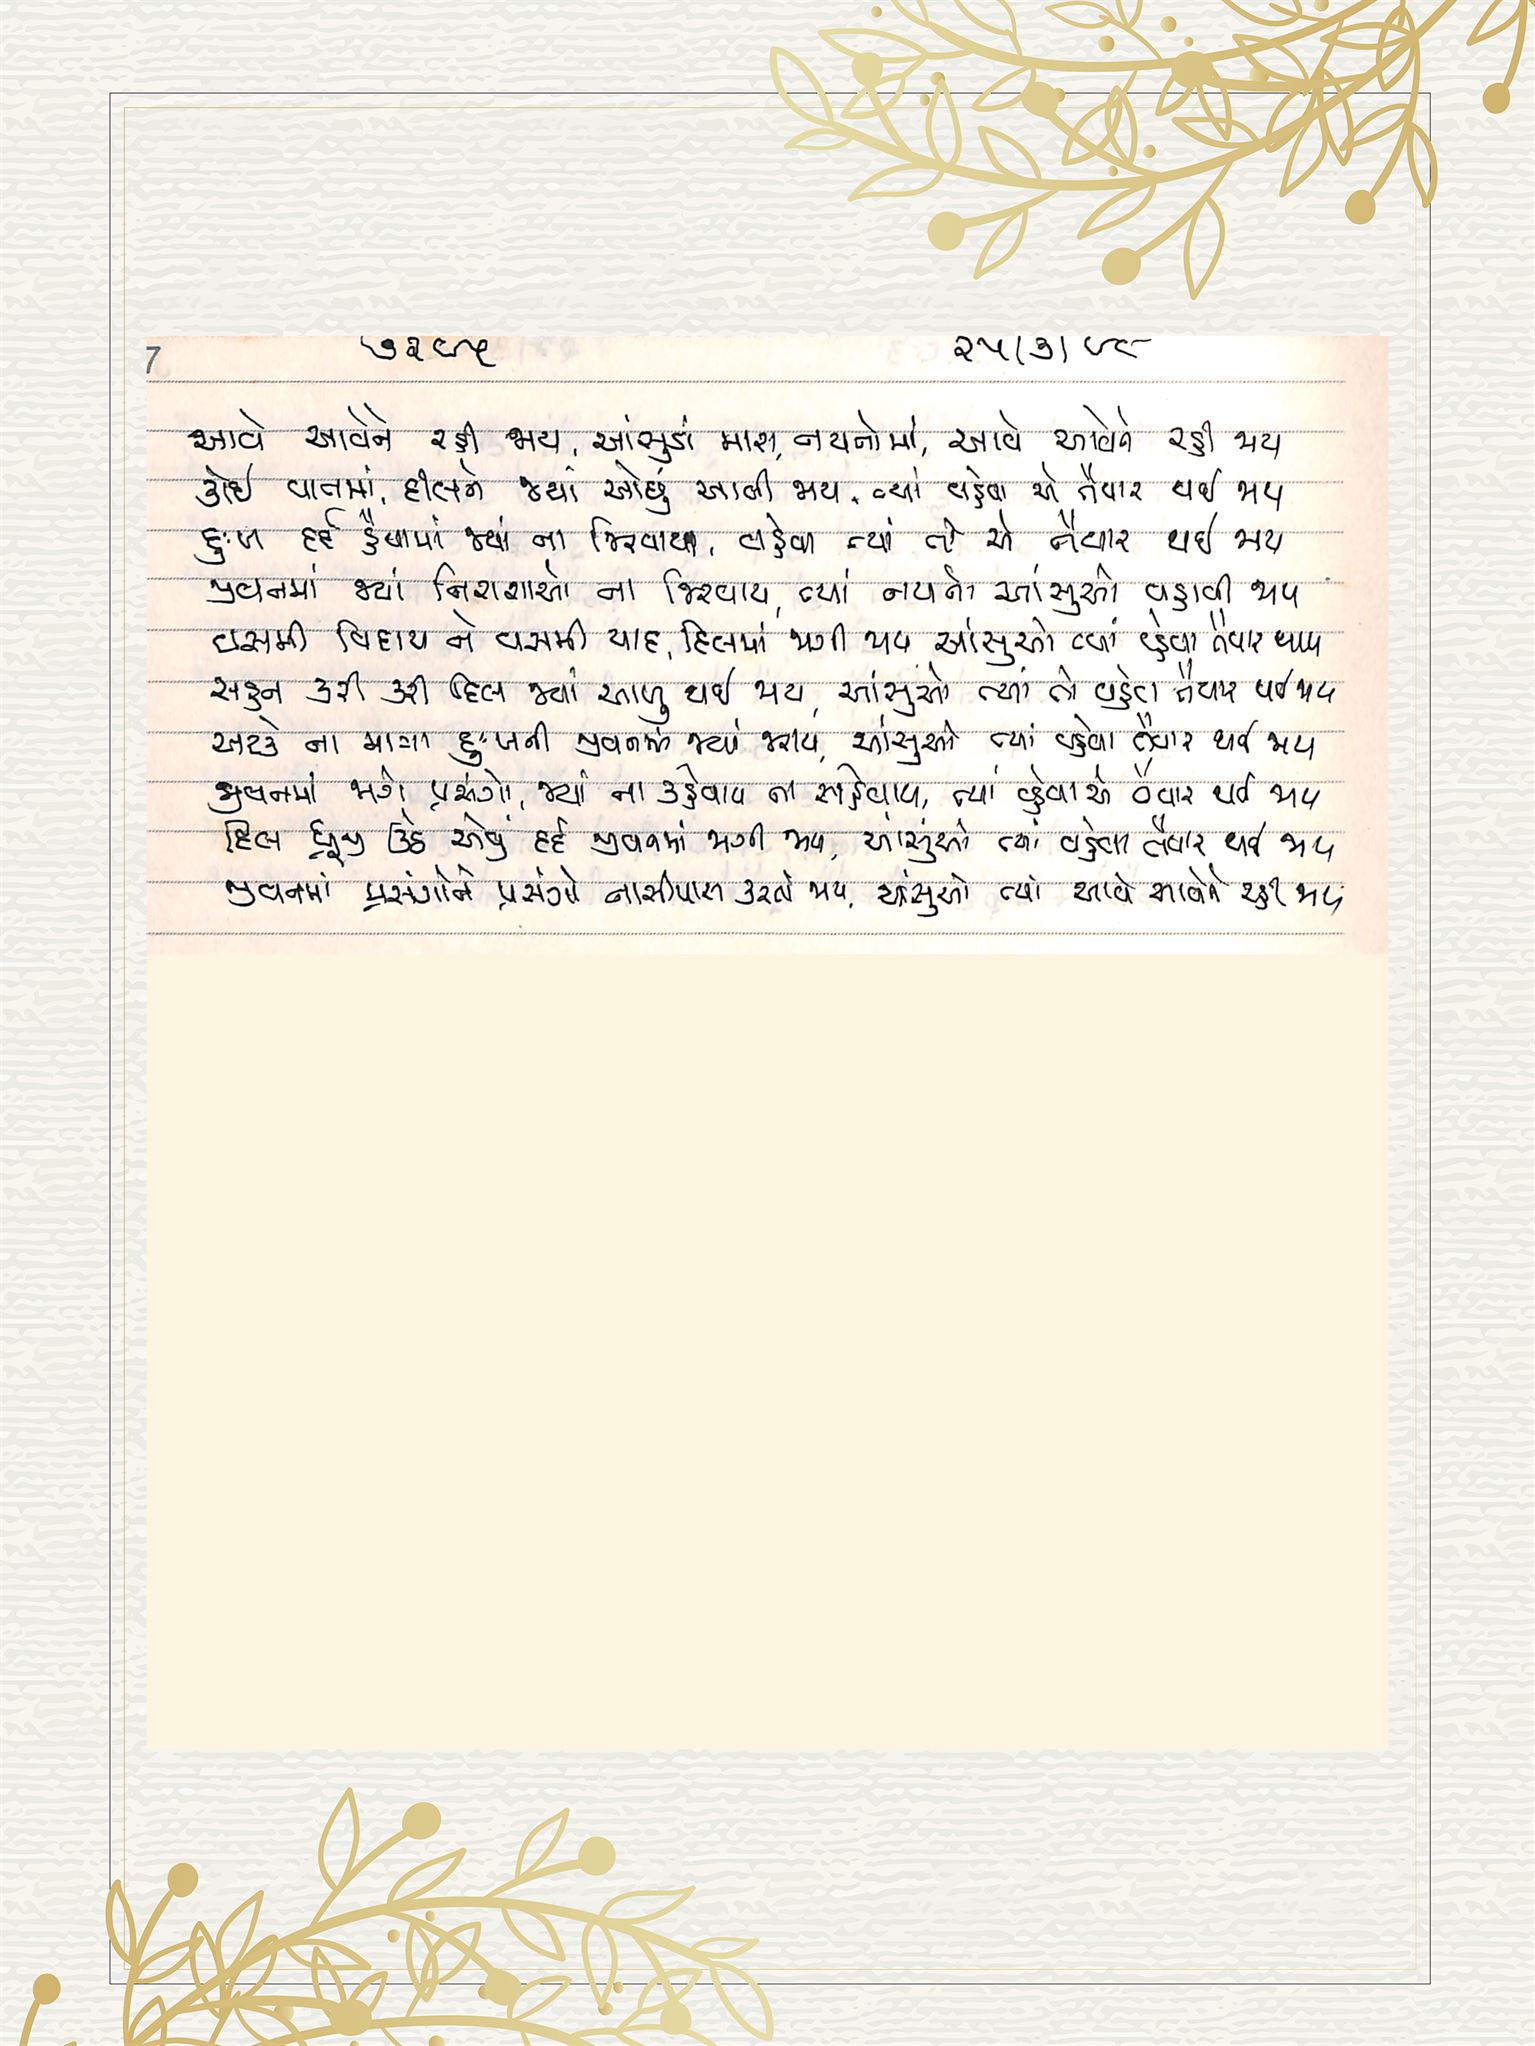 7 ૭૨૯૫ ૨૫/૩/૯૮
આવે આવેને રહી જાય, આંસુડાં મારા, નયનોમાં, આવે આવેને રહી જાય
કોઈ વાતમાં, દીલને જ્યાં ઓછું આવી જાય, ત્યાં વહેવા એ તૈયાર થઈ જાય
દુઃખ દર્દ હૈયામાં જ્યાં ના જિરવાયા, વહેવા ત્યાં તો એ તૈયાર થઈ જાય
જીવનમાં જ્યાં નિરાશાઓ ના જિરવાય, ત્યાં નયનો આંસુઓ વહાવી જાય
વસમી વિદાય ને વસમી યાદ, દિલમાં જાગી જાય આંસુઓ ત્યાં વ્હેવા તૈયાર થાય
સહન કરી કરી દિલ જ્યાં આળુ થઈ જાય, આંસુઓ ત્યાં તો વહેવા તૈયાર થઈ જાય
અટકે ના માત્રા દુઃખની જીવનમાં જ્યાં જરાય, આંસુઓ ત્યાં વહેવા તૈયાર થઈ જાય
જીવનમાં જાગે પ્રસંગો, જ્યાં ના કહેવાય ના સહેવાય, ત્યાં વ્હેવા એ તૈયાર થઈ જાય
દિલ ધ્રૂજી ઉઠે એવું દર્દ જીવનમાં જાગી જાય, આંસુઓ ત્યાં વહેવા તૈયાર થઈ જાય
જીવનમાં પ્રસંગોને પ્રસંગો નાસીપાસ કરતો જાય, આંસુઓ ત્યાં આવે આવેને રહી જાય